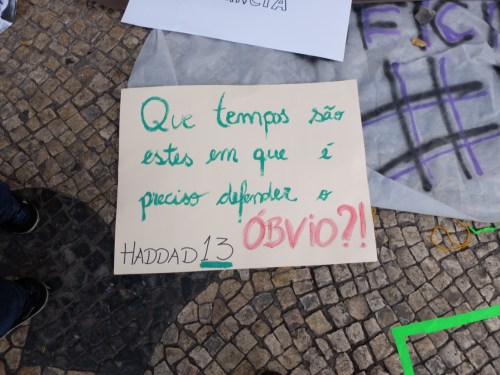 Que tempos são
estes em que é
preciso defender o
ÓBVIO?!
HADDAD 13